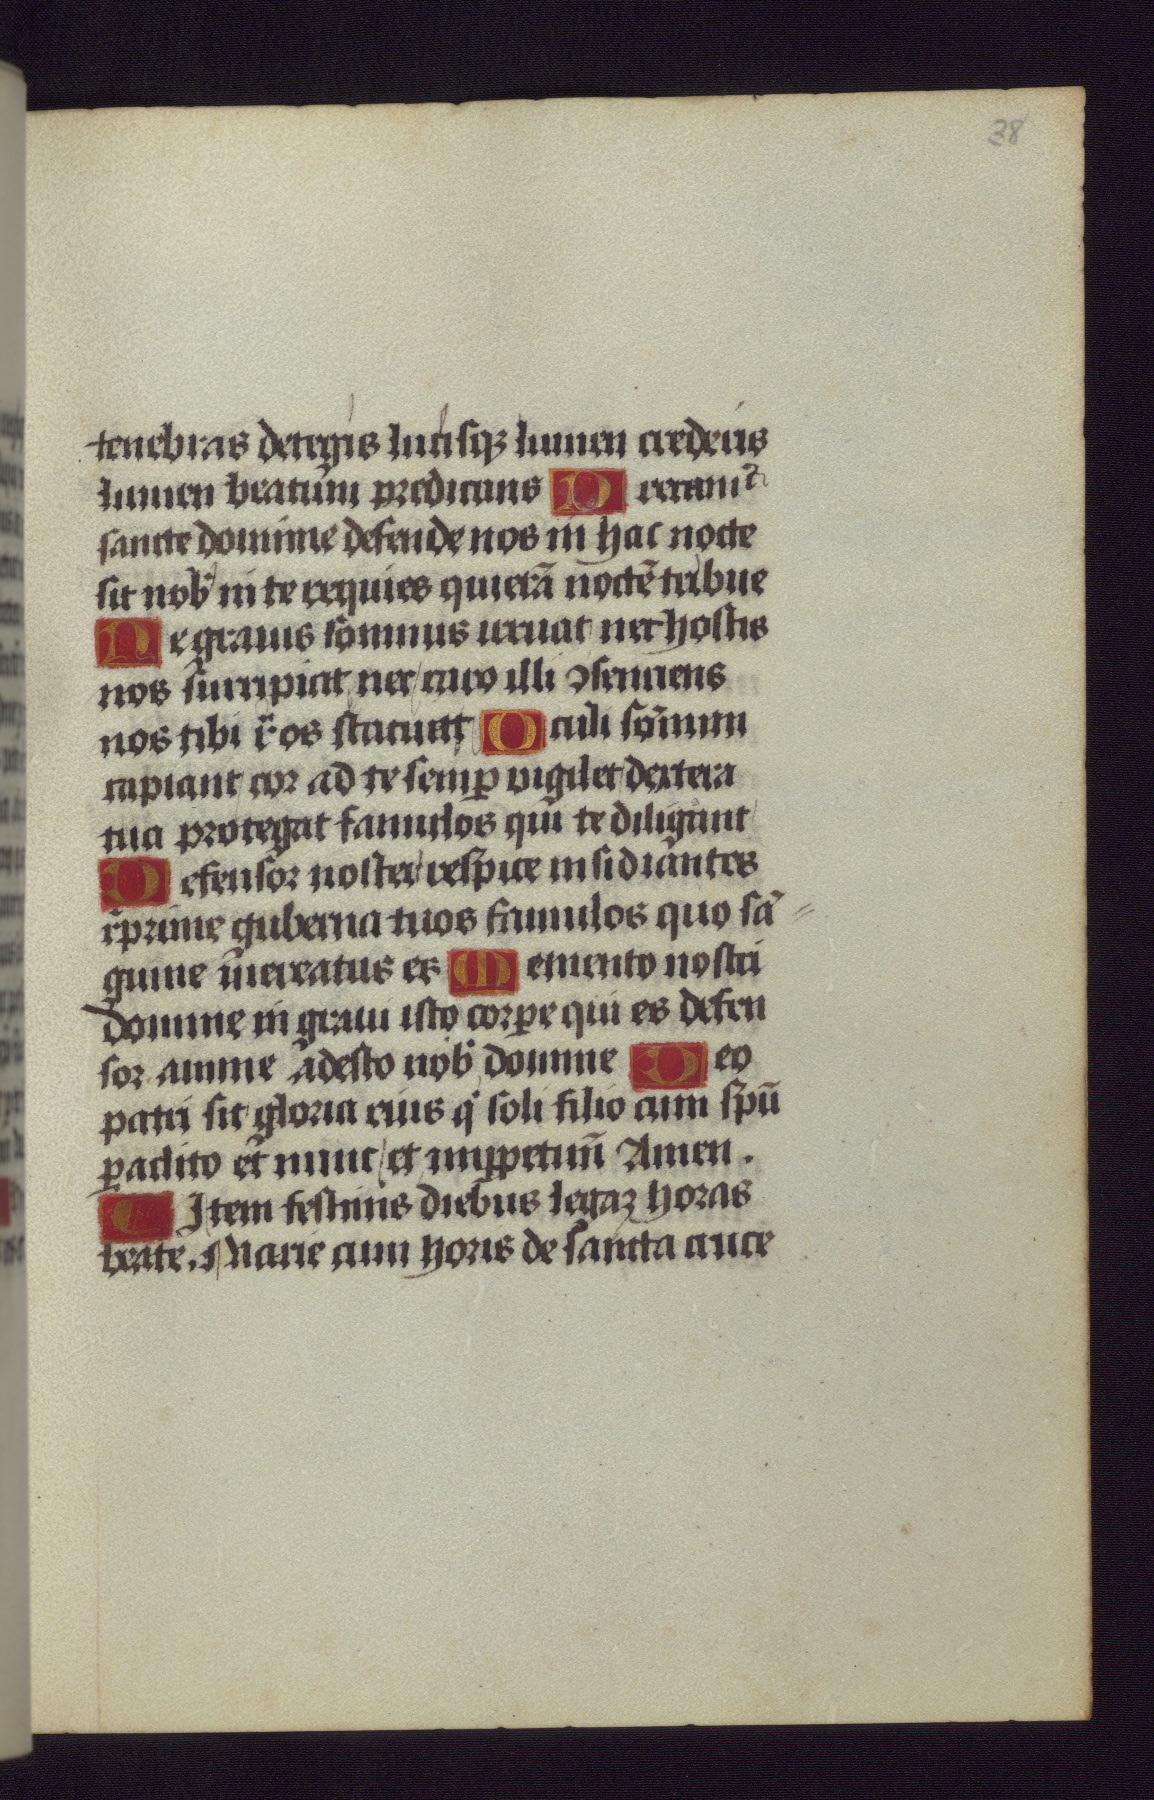 38
tenebras detegis lucisqꝫ lumen crederis
lumen beatum predicans Precamᷣ
sancte domine defende nos in hac nocte
sit nob̾ in te requies quietā noctē tribue
Ne grauis somnus irruat nec hostis
nos surripiat nec caro illi ꝯsentiens
nos tibi r̄os statuat Oculi somnum
capiant cor ad te semꝑ vigilet dextera
tua protegat famulos qui te diligunt
Defensor noster respice insidiantes
r̄prime guberna tuos famulos quo sā
guine mercatus es Memento nostri
domine in graui isto corꝑe qui es defen
sor anime adesto nob̾ domine Deo
patri sit gloria eius qꝫ soli filio cum sp̄u
ꝑaclito et nunc et imꝑpetuū Amen .
¶ Item festiuis diebus legaꝫ horas
beate . Marie cum horis de sancta cruce